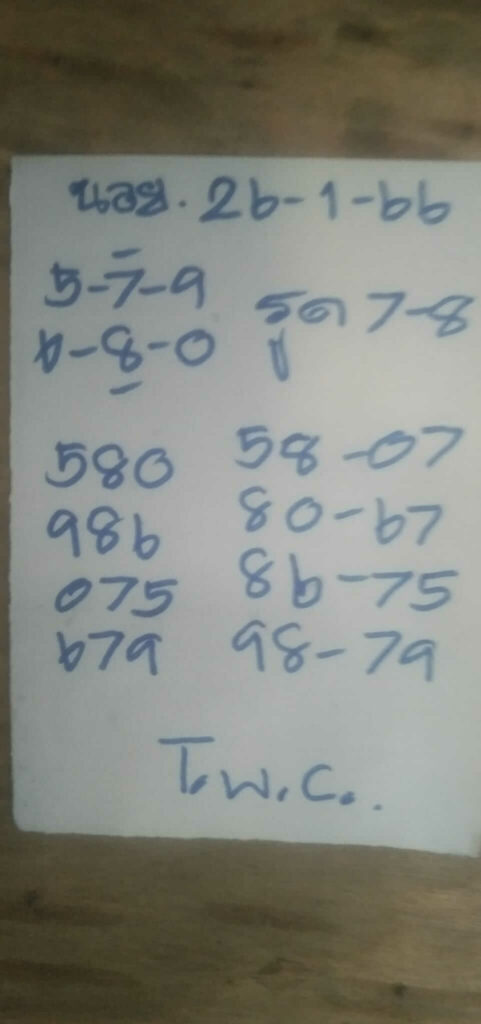 นอย. 26-1-66
5-7-9
6-8-0
รูด 7-8
580
986
075
679
58-07
80-67
86-75
98-79
T.W.C..